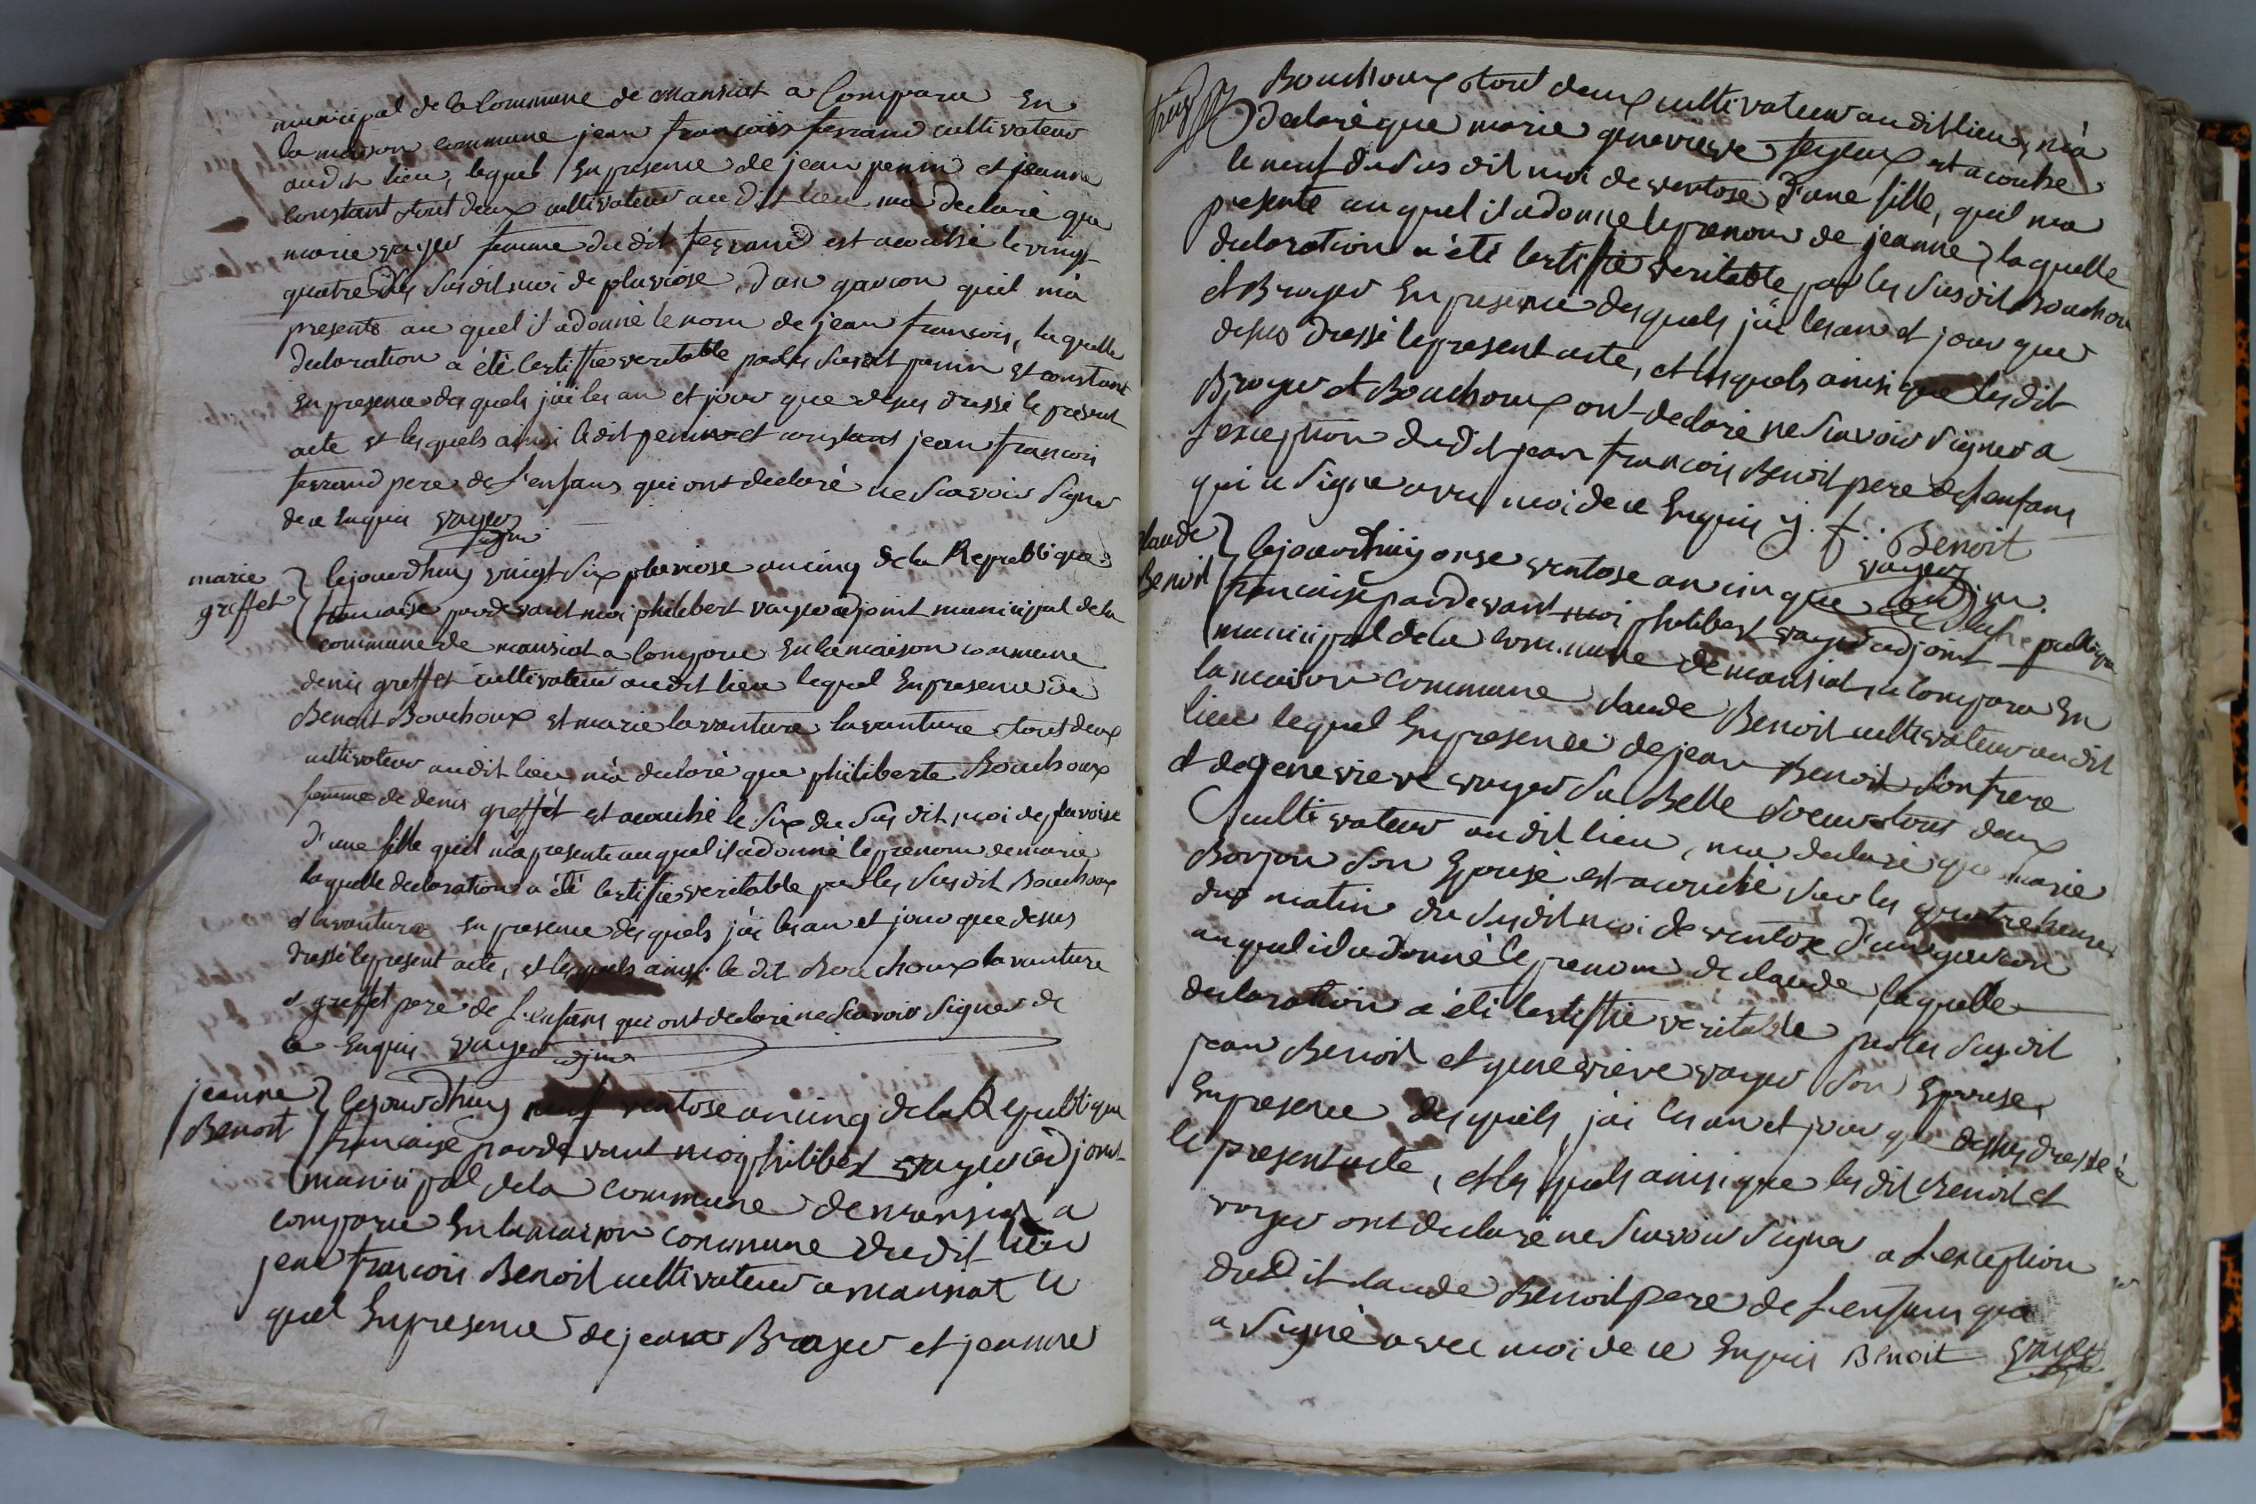 municipal de la Commune de mansiat a Comparu En
la maison commune jean francois ferrand cultivateur
audit lieu, lequel En presence de jean perrin et jeanne
constant tout deux cultivateur audit lieu ma declaré que
marie voyer femme dudit ferrand est acouthé le vingt
quatre du susdit moi de pluviose, d'un garcon quil m'a
presenté au quel il a donné le nom de jean francois, laquelle
declaration a été certiffié veritable par les susdit perrin et constant
En presence des quels j'ai les an et jour que desus dressé le present
acte et les quels ainsi ledit perrin et constant jean francois
ferrand pere de l'enfans qui ont declaré ne scavoir signer
de ce Enquis voyer
adjoint
marie
greffet
lejourdhuy vingt six pluviose an cinq de la Republique
francaise pardevant moi philibert voyer adjoint municipal de la
commune de mansiat a Comparu En la maison commune
denis greffet cultivateur audit lieu lequel En presence de
Benoit Bouchoux et marie lavanture lavanture tout deux
cultivateur audit lieu m'a declaré que philiberte Bouchoux
femme de denis greffet est acouthé le six du susdit moi de pluviose
d'une fille quil ma presenté au quel il a donné le prenom de marie
laquelle declaration a été certiffié veritable par les susdit Bouchoux
et lavanture En presence des quels j'ai les an et jour que desus
dressé le present acte, et les quels ainsi le dit Bouchoux lavanture
et greffet pere de l'enfans qui ont declaré ne scavoir signer de
ce Enquis voyer adjoint
jeanne
Benoit
lejourdhuy neuf ventose an cinq de la Republique
francaise pardevant moi philibert voyer adjoint
municipal de la commune de mansiat a
comparu En la maison commune dudit lieu
jean francois Benoit cultivateur a mansiat le
quel En presence de jean Broyer et jeanne
Bouchoux tout deux cultivateur audit lieu, m'a
declaré que marie genevieve feyeux est acouthé
le neuf du susdit moi de ventose d'une fille, quil ma
presenté au quel il a donné le prenom de jeanne, laquelle
declaration a été certiffié veritable par les susdit Bouchoux
et Broyer En presence des quels j'ai les an et jour que
desus dressé le present acte, et les quels ainsi que les dit
Broyer et Bouchoux ont declaré ne scavoir signer a
l'exception dudit jean francois Benoit pere de l'enfans
qui a signé avec moi de ce Enquis j. f. Benoit
voyer
adjoint
claude
Benoit
lejourdhuy onse ventose an cinq de la Republique
francaise pardevant moi philibert voyer adjoint
municipal de la commune de mansiat, a Comparu En
la maison commune claude Benoit cultivateur audit
lieu lequel En presence de jean Benoit son frere
et de genevieve voyer sa Belle soeur tout deux
cultivateur audit lieu, ma declaré que marie
Borjon son Epouse est acouthé sur les quatre heure
du matin du susdit moi de ventose d'un garcon
au quel il a donné le prenom de claude laquelle
declaration a été certiffié veritable par les susdit
jean Benoit et genevieve voyer son Epouse,
En presence des quels j'ai les an et jour que desus dressé
le present acte, et les quels ainsi que les dit Benoit et
voyer ont declaré ne scavoir signer a l'exception
dudit claude Benoit pere de l'enfans qui
a signé avec moi de ce Enquis Benoit voyer